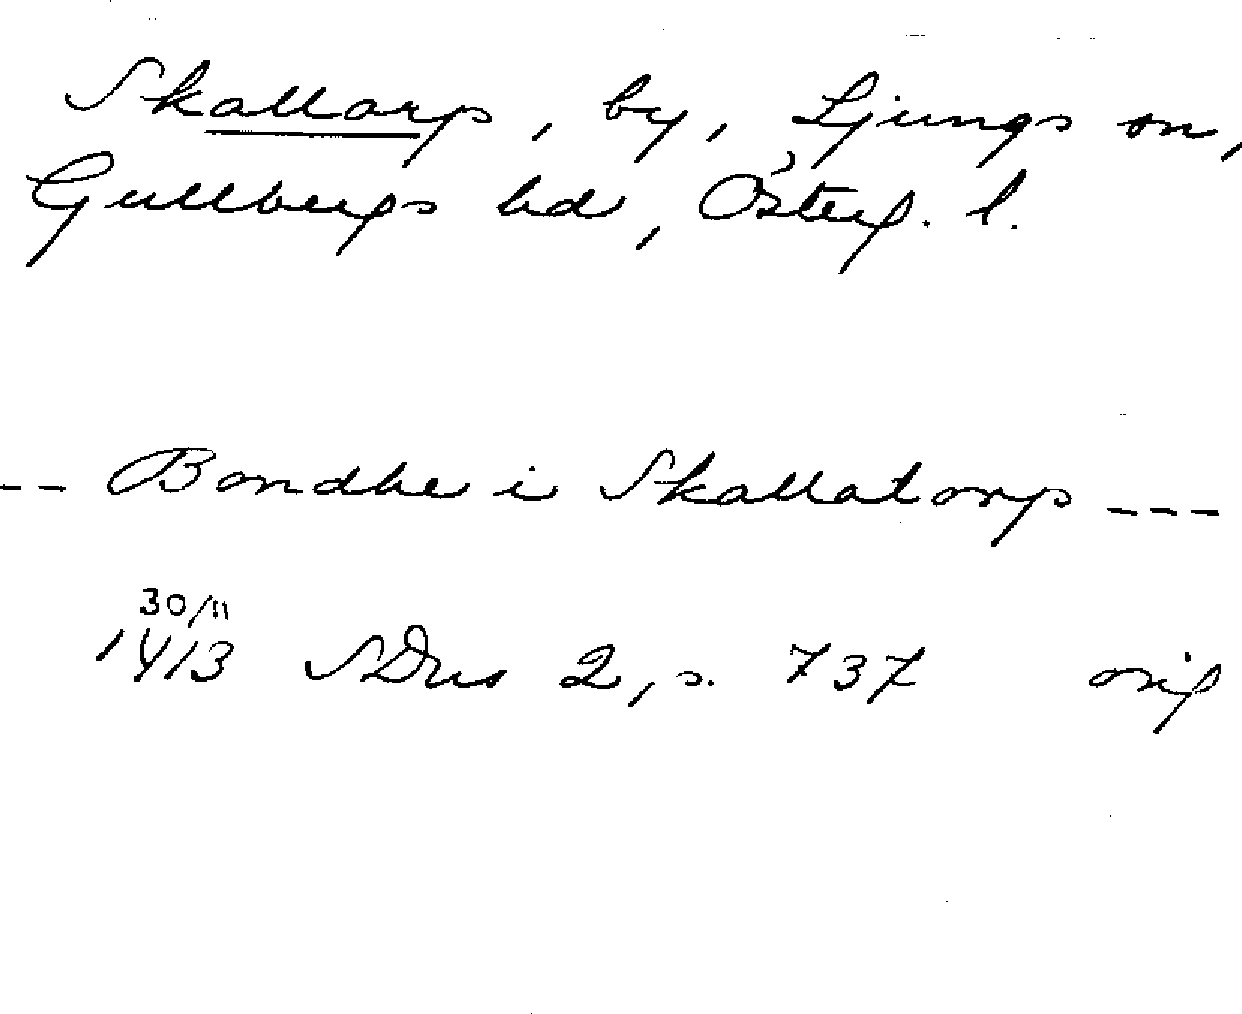 Skallarp, by, Ljungs sn,
Gullbergs hd, Österg. l.
-- Bondhe i Skallatorp ---
30/11
1413 SDns 2, s. 737 orig